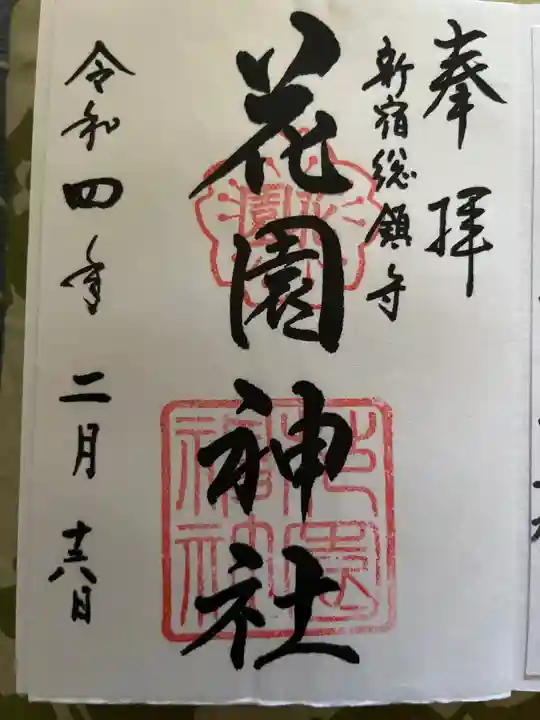 奉拝
新宿総鎮守
花園神社
令和四年二月十六日